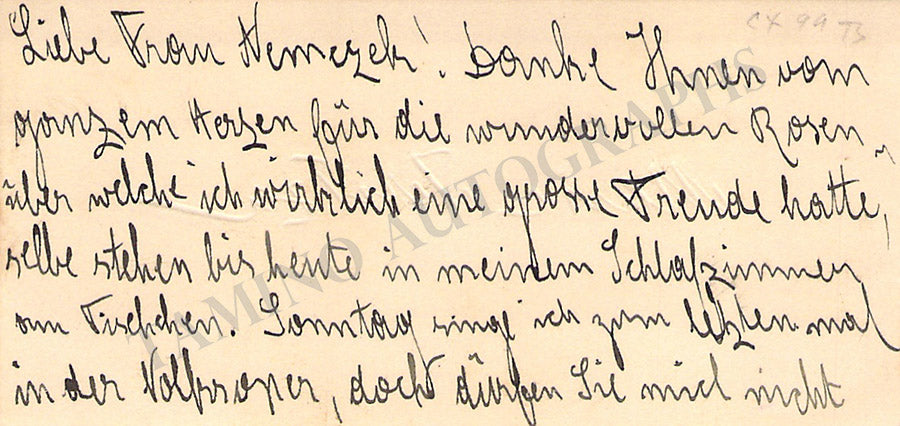 CX 99 TS
Liebe Frau Nemezek! Danke Ihnen vom
ganzem Herzen für die wundervollen Rosen
über welche ich wirklich eine grosse Freude hatte,
selbe stehen bis heute in meinem Schlafzimmer
am Tischchen. Sonntag singe ich zum letzten mal
in der Volksoper, doch dürfen Sie mich nicht
TAMINO AUTOGRAPHS